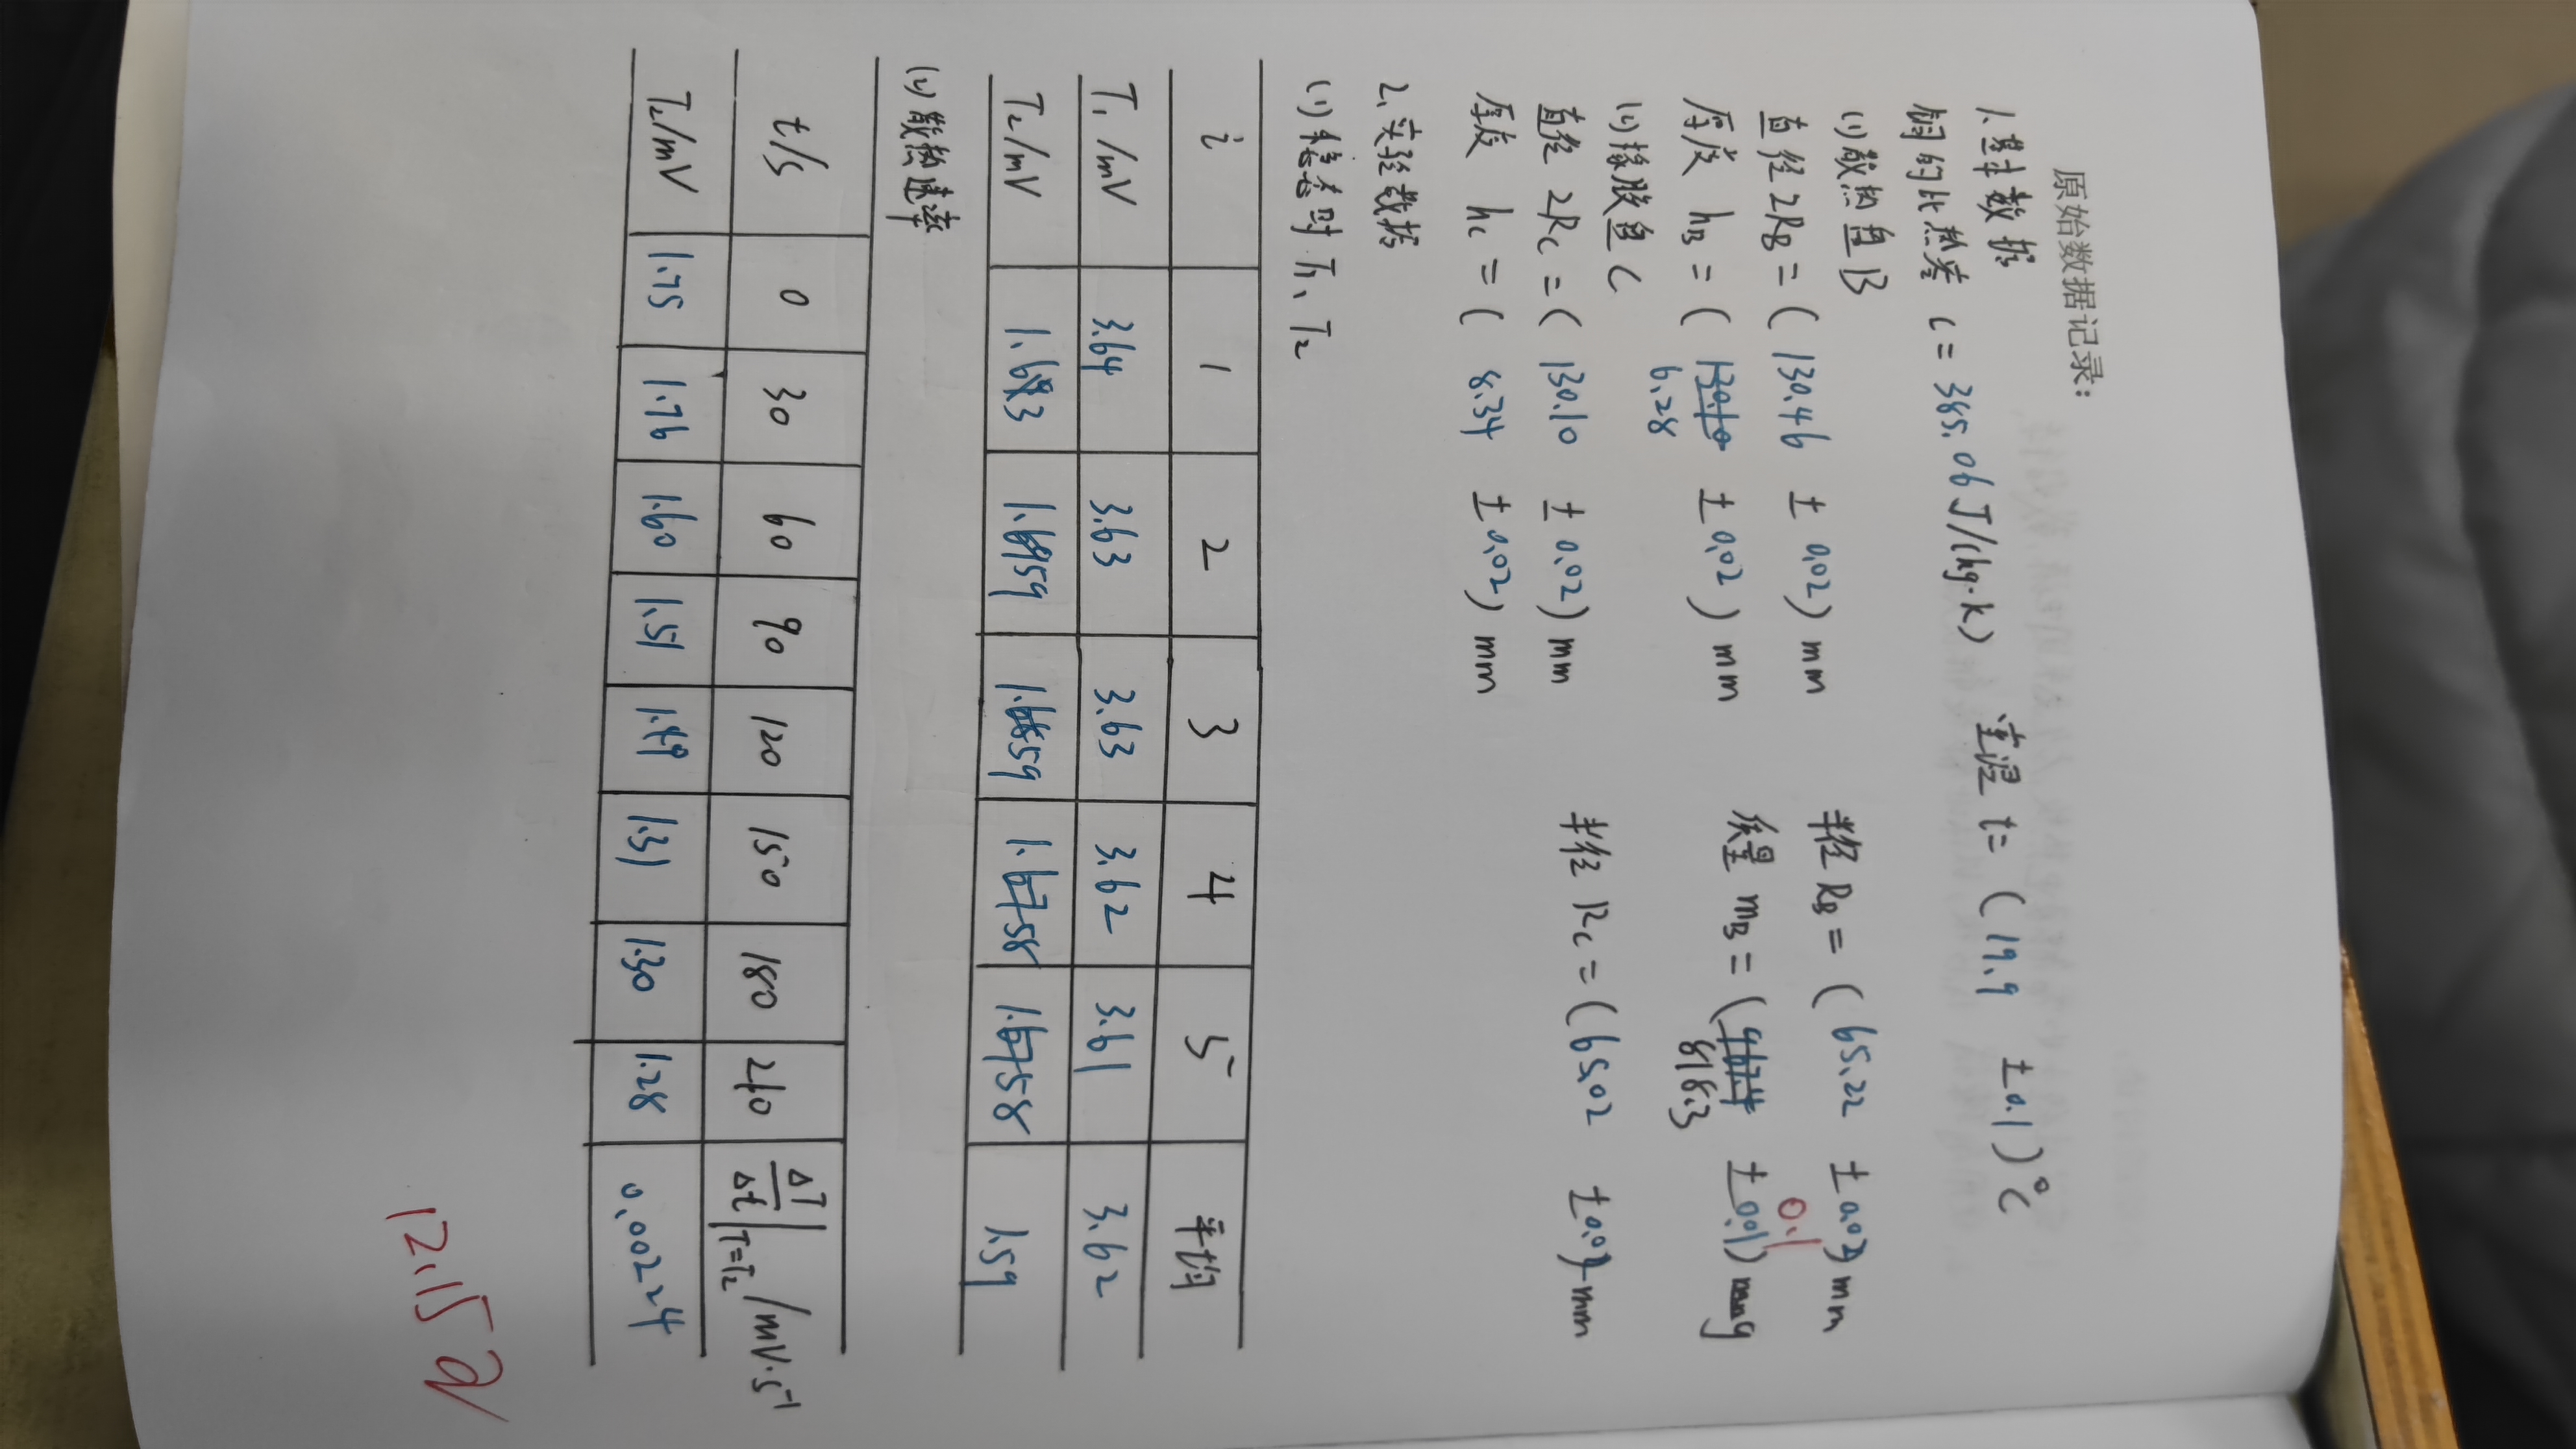 原始数据记录：
1.基本数据
铜的比热容 C = 385.06 J/(kg·k) 室温 t = ( 19.9 ± 0.1 ) ℃
(1) 散热盘 B
直径 2RB = ( 130.46 ± 0.02 ) mm 半径 RB = ( 65.22 ± 0.02 ) mm
厚度 hB = ( 6.28 ± 0.02 ) mm 质量 mB = ( 818.3 ± 0.01 ) g
0.1
(2) 橡胶盘 C
直径 2RC = ( 130.10 ± 0.02 ) mm 半径 RC = ( 65.02 ± 0.02 ) mm
厚度 hC = ( 8.34 ± 0.02 ) mm
2.实验数据
(1) 稳态时 T1、T2
i 1 2 3 4 5 平均
T1/mV 3.64 3.63 3.63 3.62 3.61 3.62
T2/mV 1.63 1.59 1.59 1.58 1.58 1.59
(2) 散热速率
t/s 0 30 60 90 120 150 180 210 ΔT/Δt|T=T2 /mV·s⁻¹
T2/mV 1.75 1.76 1.60 1.51 1.49 1.31 1.30 1.28 0.00224
12.15